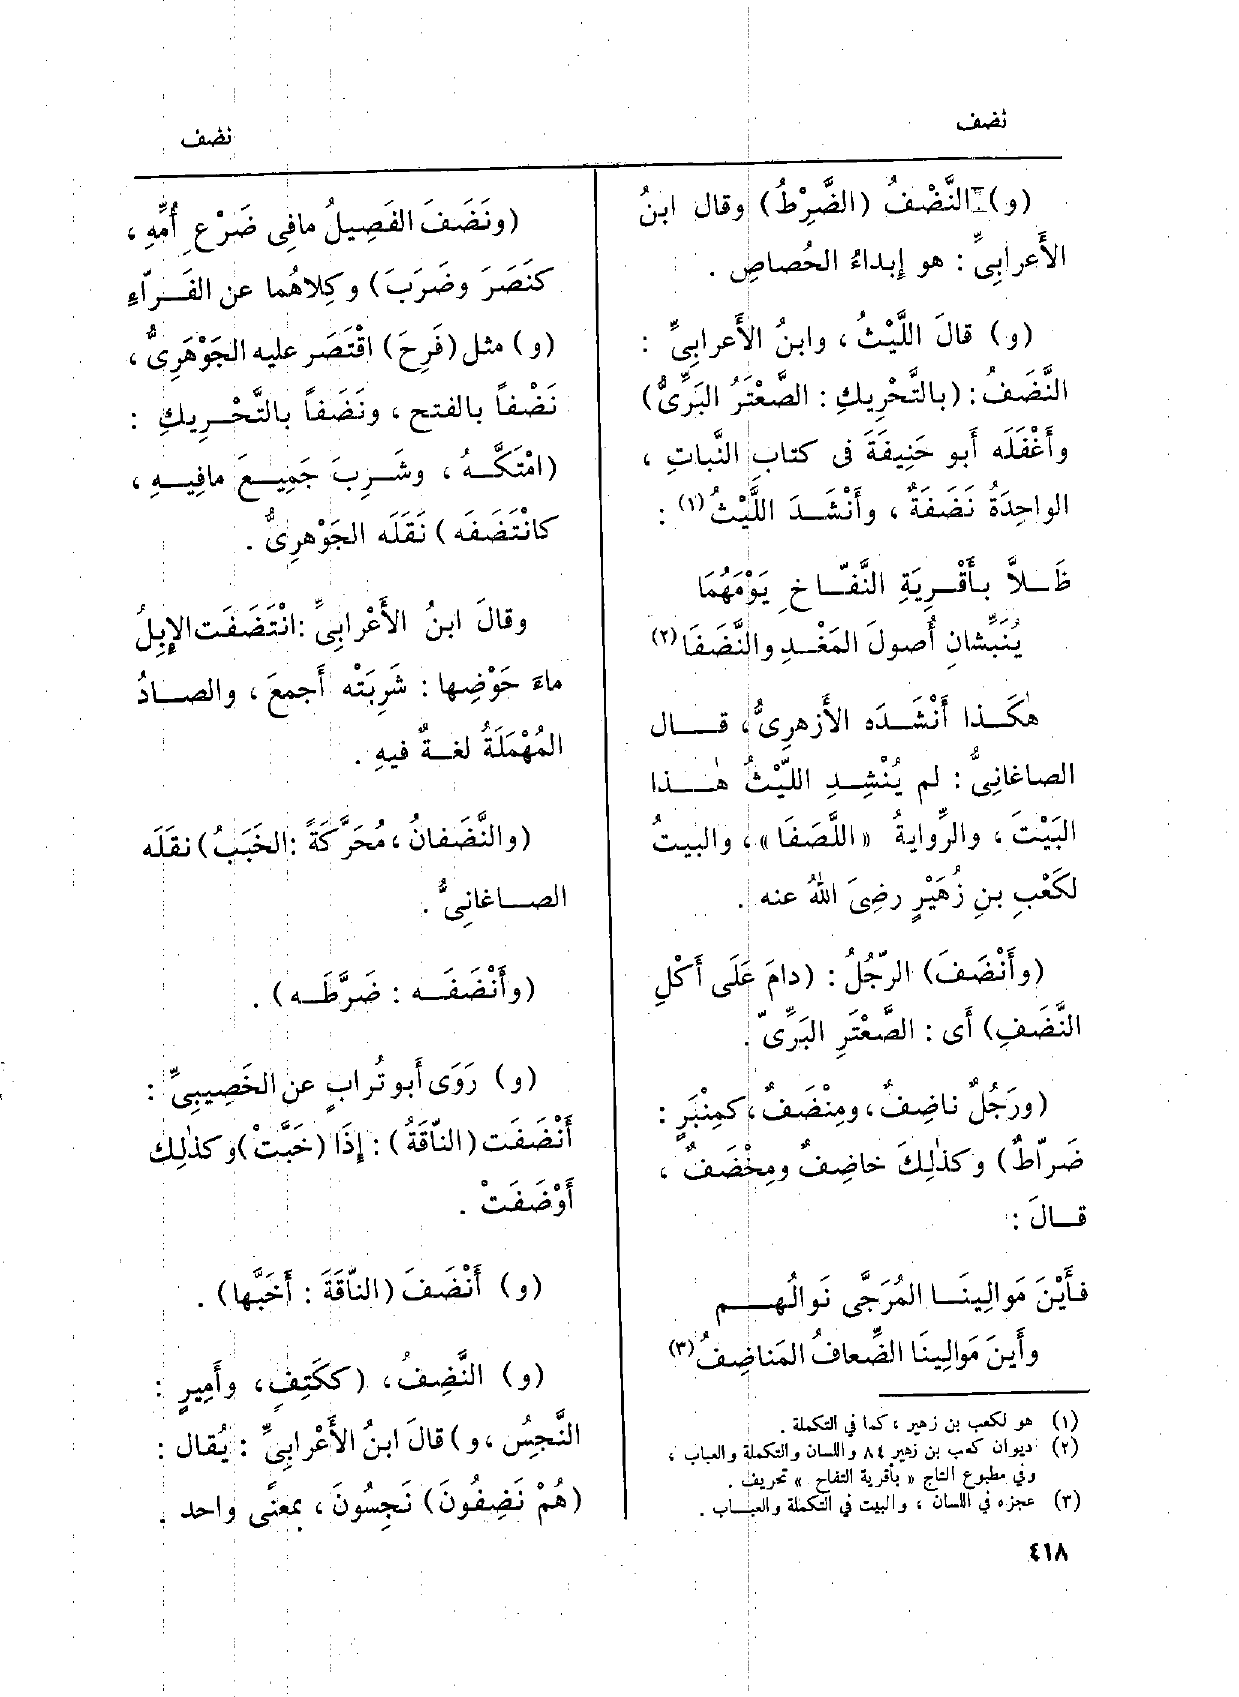 نضف
نضف
(و) النَّضْفُ (الضَّرِطُ) وقال ابنُ
الأَعرابِىِّ : هو إِبداءُ الحُصاصِ .
(و) قالَ اللَّيْثُ ، وابنُ الأَعرابِىِّ :
النَّضَفُ : (بالتَّحْرِيكِ : الصَّعْتَرُ البَرِّىُّ)
وأَغْفَلَه أَبو حَنِيفَةَ فى كتابِ النَّباتِ ،
الواحِدَةُ نَضَفَةٌ ، وأَنْشَدَ اللَّيْثُ (١) :
ظَلاَّ بأَقْرِيَةِ النَّفّاخِ يَوْمَهُمَا
يُنَبِّشانِ أُصولَ المَغْدِ والنَّضَفَا (٢)
هٰكَذا أَنْشَدَه الأَزهرِىُّ ، قال
الصاغانِىُّ : لم يُنْشِدِ اللَّيْثُ هٰذا
البَيْتَ ، والرِّوايةُ «اللَّصَفَا» ، والبيتُ
لكَعْبِ بنِ زُهَيْرٍ رضِىَ اللهُ عنه .
(وأَنْضَفَ) الرّجُلُ : (دامَ عَلَى أَكْلِ
النَّضَفِ) أَى : الصَّعْتَرِ البَرِّىِّ .
(ورَجُلٌ ناضِفٌ ، ومِنْضَفٌ ، كمِنْبَرٍ :
ضَرّاطٌ) وكذٰلِكَ خاضِفٌ ومِخْضَفٌ ،
قالَ :
فأَيْنَ مَوالِينَا المُرَجَّى نَوالُهم
وأَينَ مَوالِينَا الضِّعافُ المَناضِفُ (٣)
(١) هو لكعب بن زهير ، كما في التكملة .
(٢) ديوان كعب بن زهير ٨٤ واللسان والتكملة والعباب ،
وفي مطبوع التاج « بأقرية التفاح » تحريف .
(٣) عجزه في اللسان ، والبيت في التكملة والعباب .
٤١٨
(ونَضَفَ الفَصِيلُ مافِى ضَرْعِ أُمِّهِ ،
كنَصَرَ وضَرَبَ) وكِلاهُما عن الفَرّاءِ
(و) مثل (فَرِحَ) اقْتَصَر عليه الجَوْهَرِىُّ ،
نَضْفاً بالفتح ، ونَضَفاً بالتَّحْرِيكِ :
(امْتَكَّهُ ، وشَرِبَ جَمِيعَ مافِيهِ ،
كانْتَضَفَه) نَقَلَه الجَوْهرِىُّ .
وقالَ ابنُ الأَعْرابِىِّ : انْتَضَفَت الإِبِلُ
ماءَ حَوْضِها : شَرِبَتْه أَجمعَ ، والصادُ
المُهْمَلَةُ لغةٌ فيهِ .
(والنَّضَفانُ ، مُحَرَّكَةً : الخَبَبُ) نقَلَه
الصاغانِىُّ .
(وأَنْضَفَه : ضَرَّطَه) .
(و) رَوَى أَبو تُرابٍ عن الخَصِيبِىِّ :
أَنْضَفَت (النّاقَةُ) : إِذَا (خَبَّتْ) وكذٰلِك
أَوْضَفَتْ .
(و) أَنْضَفَ (النّاقَةَ : أَخَبَّها) .
(و) النَّضِفُ ، (ككَتِفٍ ، وأَمِيرٍ :
النَّجِسُ ، و) قالَ ابنُ الأَعْرابِىِّ : يُقال :
(هُمْ نَضِفُونَ) نَجِسُونَ ، بمعنًى واحد .